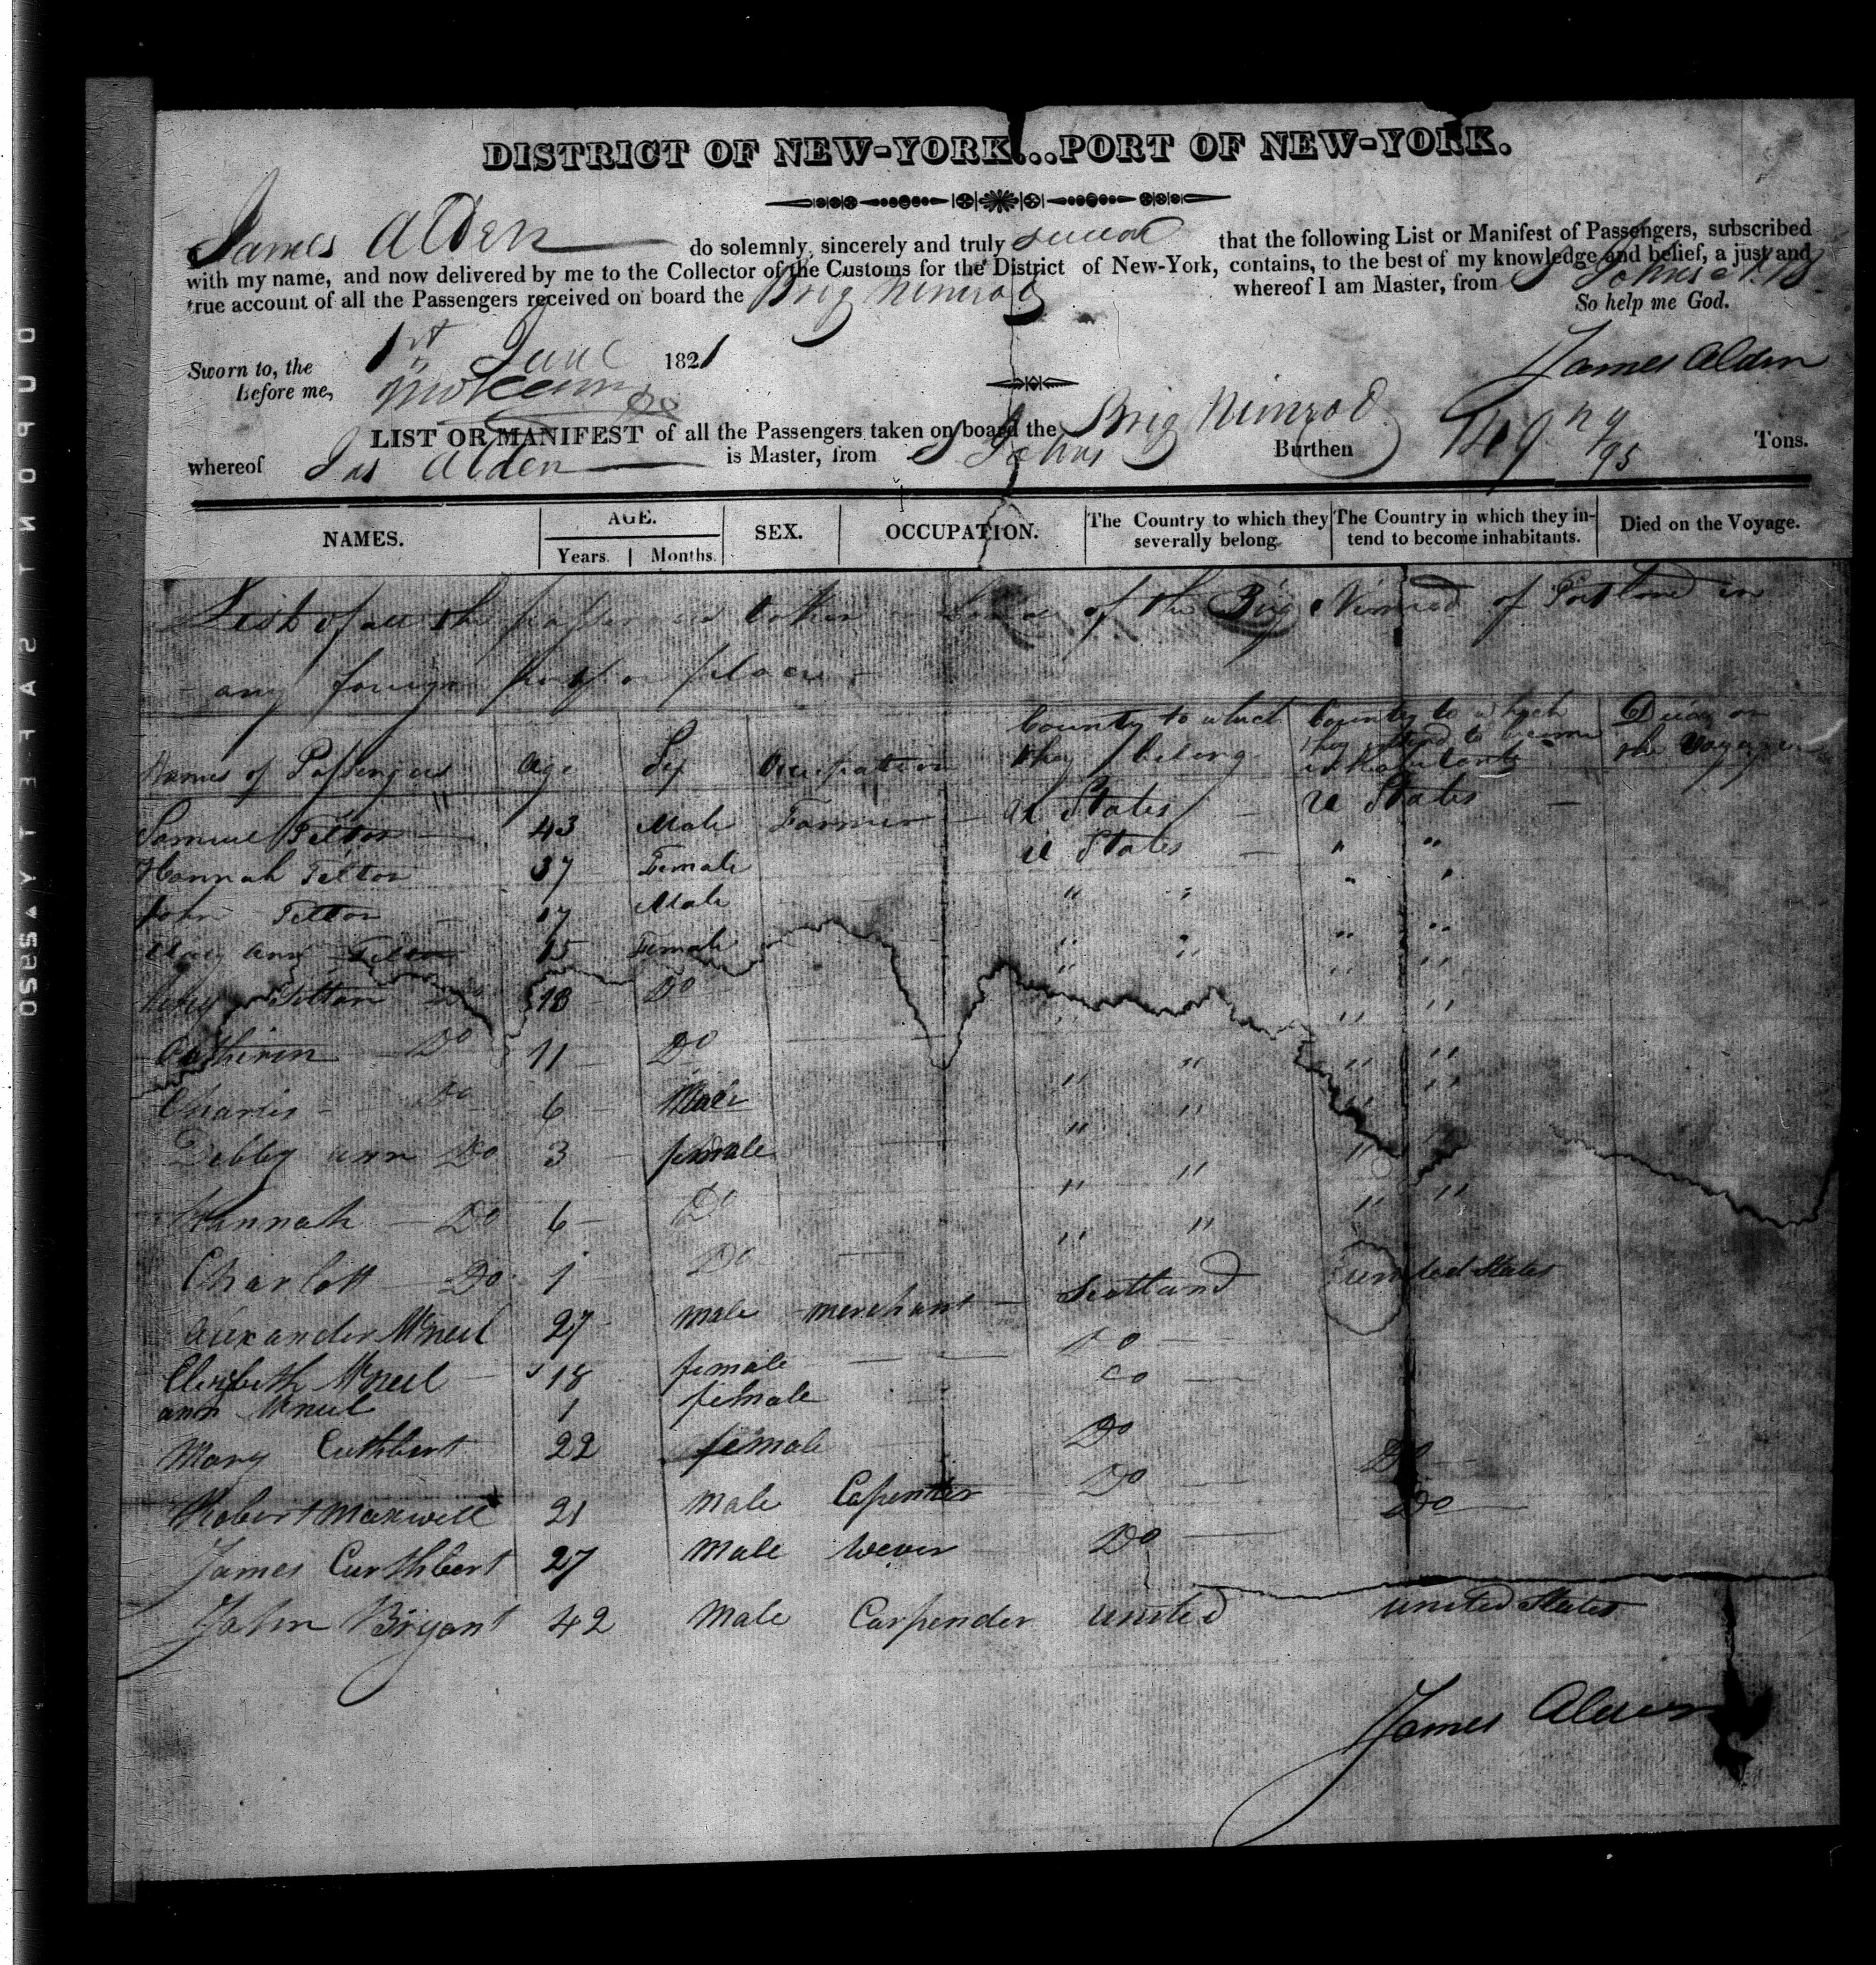 DISTRICT OF NEW-YORK...PORT OF NEW-YORK.
James Alden do solemnly, sincerely and truly swear that the following List or Manifest of Passengers, subscribed
with my name, and now delivered by me to the Collector of the Customs for the District of New-York, contains, to the best of my knowledge and belief, a just and
true account of all the Passengers received on board the Brig Nimrod whereof I am Master, from St Johns N.B.
So help me God.
Sworn to, the 1st June 1821
Before me,
James Alden
LIST OR MANIFEST of all the Passengers taken on board the Brig Nimrod Burthen Tons.
whereof Jas Alden is Master, from St Johns
NAMES. AGE. SEX. OCCUPATION. The Country to which they severally belong. The Country in which they intend to become inhabitants. Died on the Voyage.
Years. Months.
List of all the passengers taken on board of the Brig Nimrod of Portland in
any foreign port or place
Names of Passengers Age Sex Occupation Country to which they belong Country to which they intend to become inhabitants on the Voyage
Samuel Tilton 43 Male Farmer U States U States
Hannah Tilton 37 Female U States " "
John Tilton 17 Male " " " "
Mary Ann Tilton 15 Female " " " "
Tilton 13 Do " " "
Catherin Do 11 Do " " " "
Charles Do 6 Male " " " "
Debby ann Do 3 female " " "
Hannah Do 6 Do " " " "
Charlott Do 1 Do " "
Alexander Mcneil 27 male merchant Scotland united States
Elizbeth Mcneil 18 female Do
ann Mcneil 1 female Do
Mary Cuthbert 22 female Do
Robert Maxwell 21 Male Capender Do Do
James Curthbert 27 Male Wever Do Do
John Bryant 42 Male Carpender united united States
James Alden
DUPONT SAFETY▲BASE